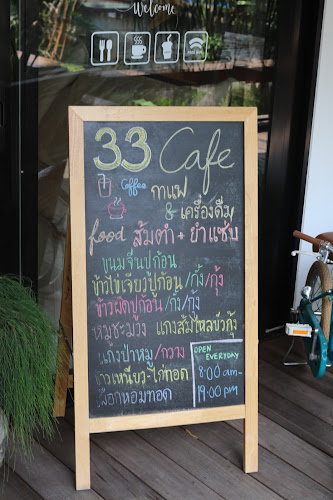 Welcome
33 Cafe
Coffee กาแฟ
& เครื่องดื่ม
food ส้มตำ + ยำแซ่บ
ขนมจีนปูก้อน
ข้าวไข่เจียวปูก้อน/กั้ง/กุ้ง
ข้าวผัดปูก้อน/กั้ง/กุ้ง
หมูชะมวง แกงส้มไหลบัวกุ้ง
แกงป่าหมู/กวาง
ข้าวเหนียว-ไก่ทอด
เผือกหอมทอด
OPEN
EVERYDAY
8:00 am-
19:00 pm